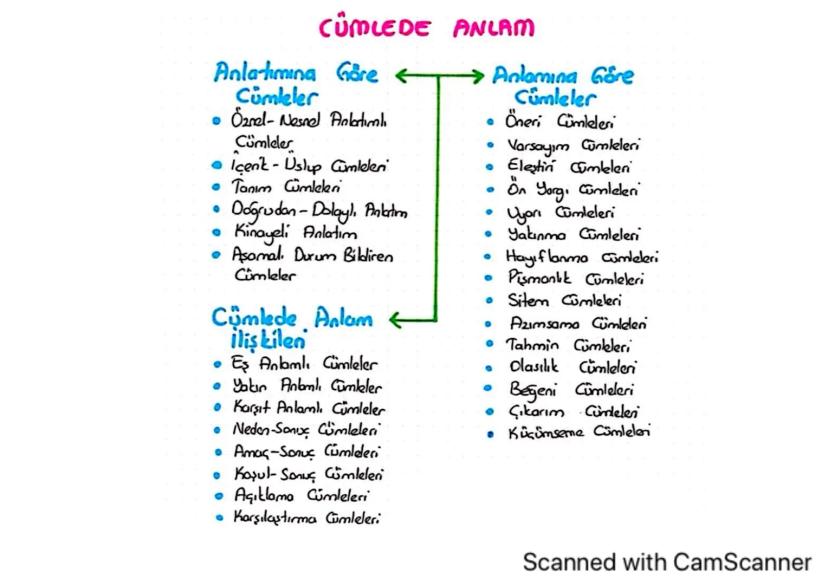 CÜMLEDE ANLAM
Anlatımına Göre
Cümleler
• Öznel-Nesnel Anlatımlı
Cümleler
• İçerik-Üslup Cümleleri
• Tanım Cümleleri
• Doğrudan-Dolaylı Anlatım
• Kinayeli Anlatım
• Aşamalı Durum Bildiren
Cümleler
Cümlede Anlam
İlişkileri
• Eş Anlamlı Cümleler
• Yakın Anlamlı Cümleler
• Karşıt Anlamlı Cümleler
• Neden-Sonuç Cümleleri
• Amaç-Sonuç Cümleleri
• Koşul-Sonuç Cümleleri
• Açıklama Cümleleri
• Karşılaştırma Cümleleri
Anlamına Göre
Cümleler
• Öneri Cümleleri
• Varsayım Cümleleri
• Eleştiri Cümleleri
• Ön Yargı Cümleleri
• Uyarı Cümleleri
• Yakınma Cümleleri
• Hayıflanma Cümleleri
• Pişmanlık Cümleleri
• Sitem Cümleleri
• Azımsama Cümleleri
• Tahmin Cümleleri
• Olasılık Cümleleri
• Beğeni Cümleleri
• Çıkarım Cümleleri
• Küçümseme Cümleleri
Scanned with CamScanner